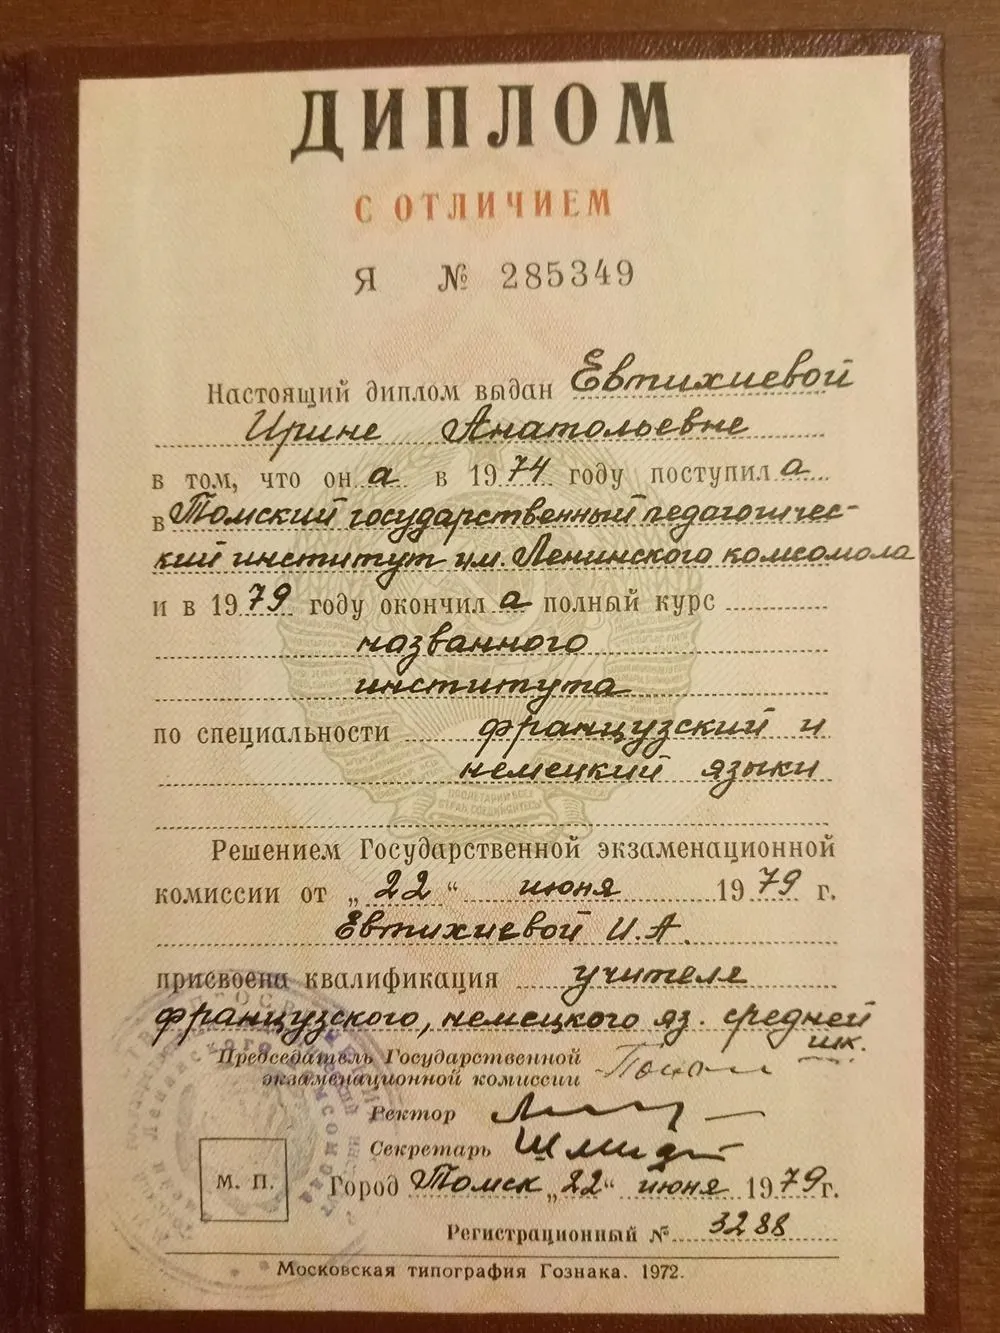 ДИПЛОМ
С ОТЛИЧИЕМ
Я № 285349
Настоящий диплом выдан Евтихиевой
Ирине Анатольевне
в том, что он а в 1974 году поступил а
в Томский государственный педагогичес-
кий институт им. Ленинского комсомола
и в 1979 году окончил а полный курс
названного
института
по специальности французский и
немецкий языки
Решением Государственной экзаменационной
комиссии от „22“ июня 1979 г.
Евтихиевой И.А.
присвоена квалификация учителя
французского, немецкого яз. средней
шк.
Председатель Государственной
экзаменационной комиссии
Ректор
Секретарь Шмидт
М. П.
Город Томск „22“ июня 1979г.
Регистрационный № 3288
Московская типография Гознака. 1972.